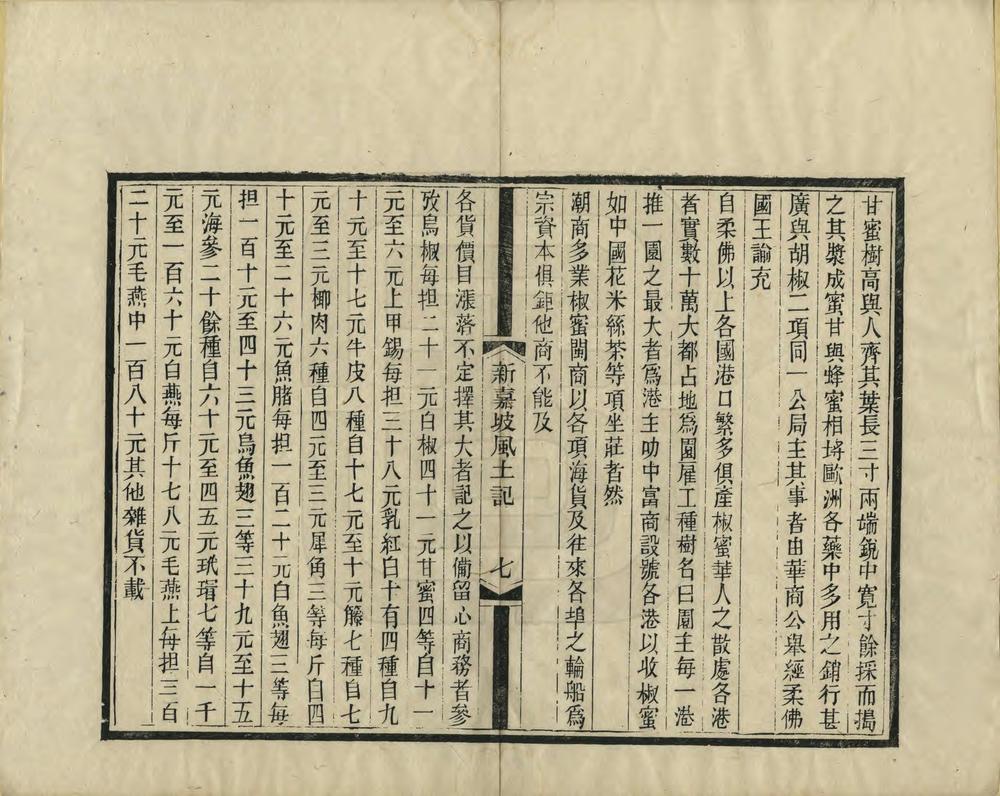 甘蜜樹高與人齊其葉長三寸兩端銳中寬寸餘採而搗
之其漿成蜜甘與蜂蜜相埒歐洲各藥中多用之銷行甚
廣與胡椒二項同一公局主其事者由華商公舉經柔佛
國王諭充
自柔佛以上各國港口繁多俱產椒蜜華人之散處各港
者實數十萬大都占地爲園雇工種樹名曰園主每一港
推一園之最大者爲港主叻中富商設號各港以收椒蜜
如中國花米絲茶等項坐莊者然
潮商多業椒蜜閩商以各項海貨及往來各埠之輪船爲
宗資本俱鉅他商不能及
新嘉坡風土記 七
各貨價目漲落不定擇其大者記之以備留心商務者參
攷烏椒每担二十一元白椒四十一元甘蜜四等自十一
元至六元上甲錫每担三十八元乳紅白十有四種自九
十元至十七元牛皮八種自十七元至十元籐七種自七
元至三元椰肉六種自四元至三元犀角三等每斤自四
十元至二十六元魚膠每担一百二十元白魚翅三等每
担一百十元至四十三元烏魚翅三等三十九元至十五
元海參二十餘種自六十元至四五元玳瑁七等自一千
元至一百六十元白燕每斤十七八元毛燕上每担三百
二十元毛燕中一百八十元其他雜貨不載